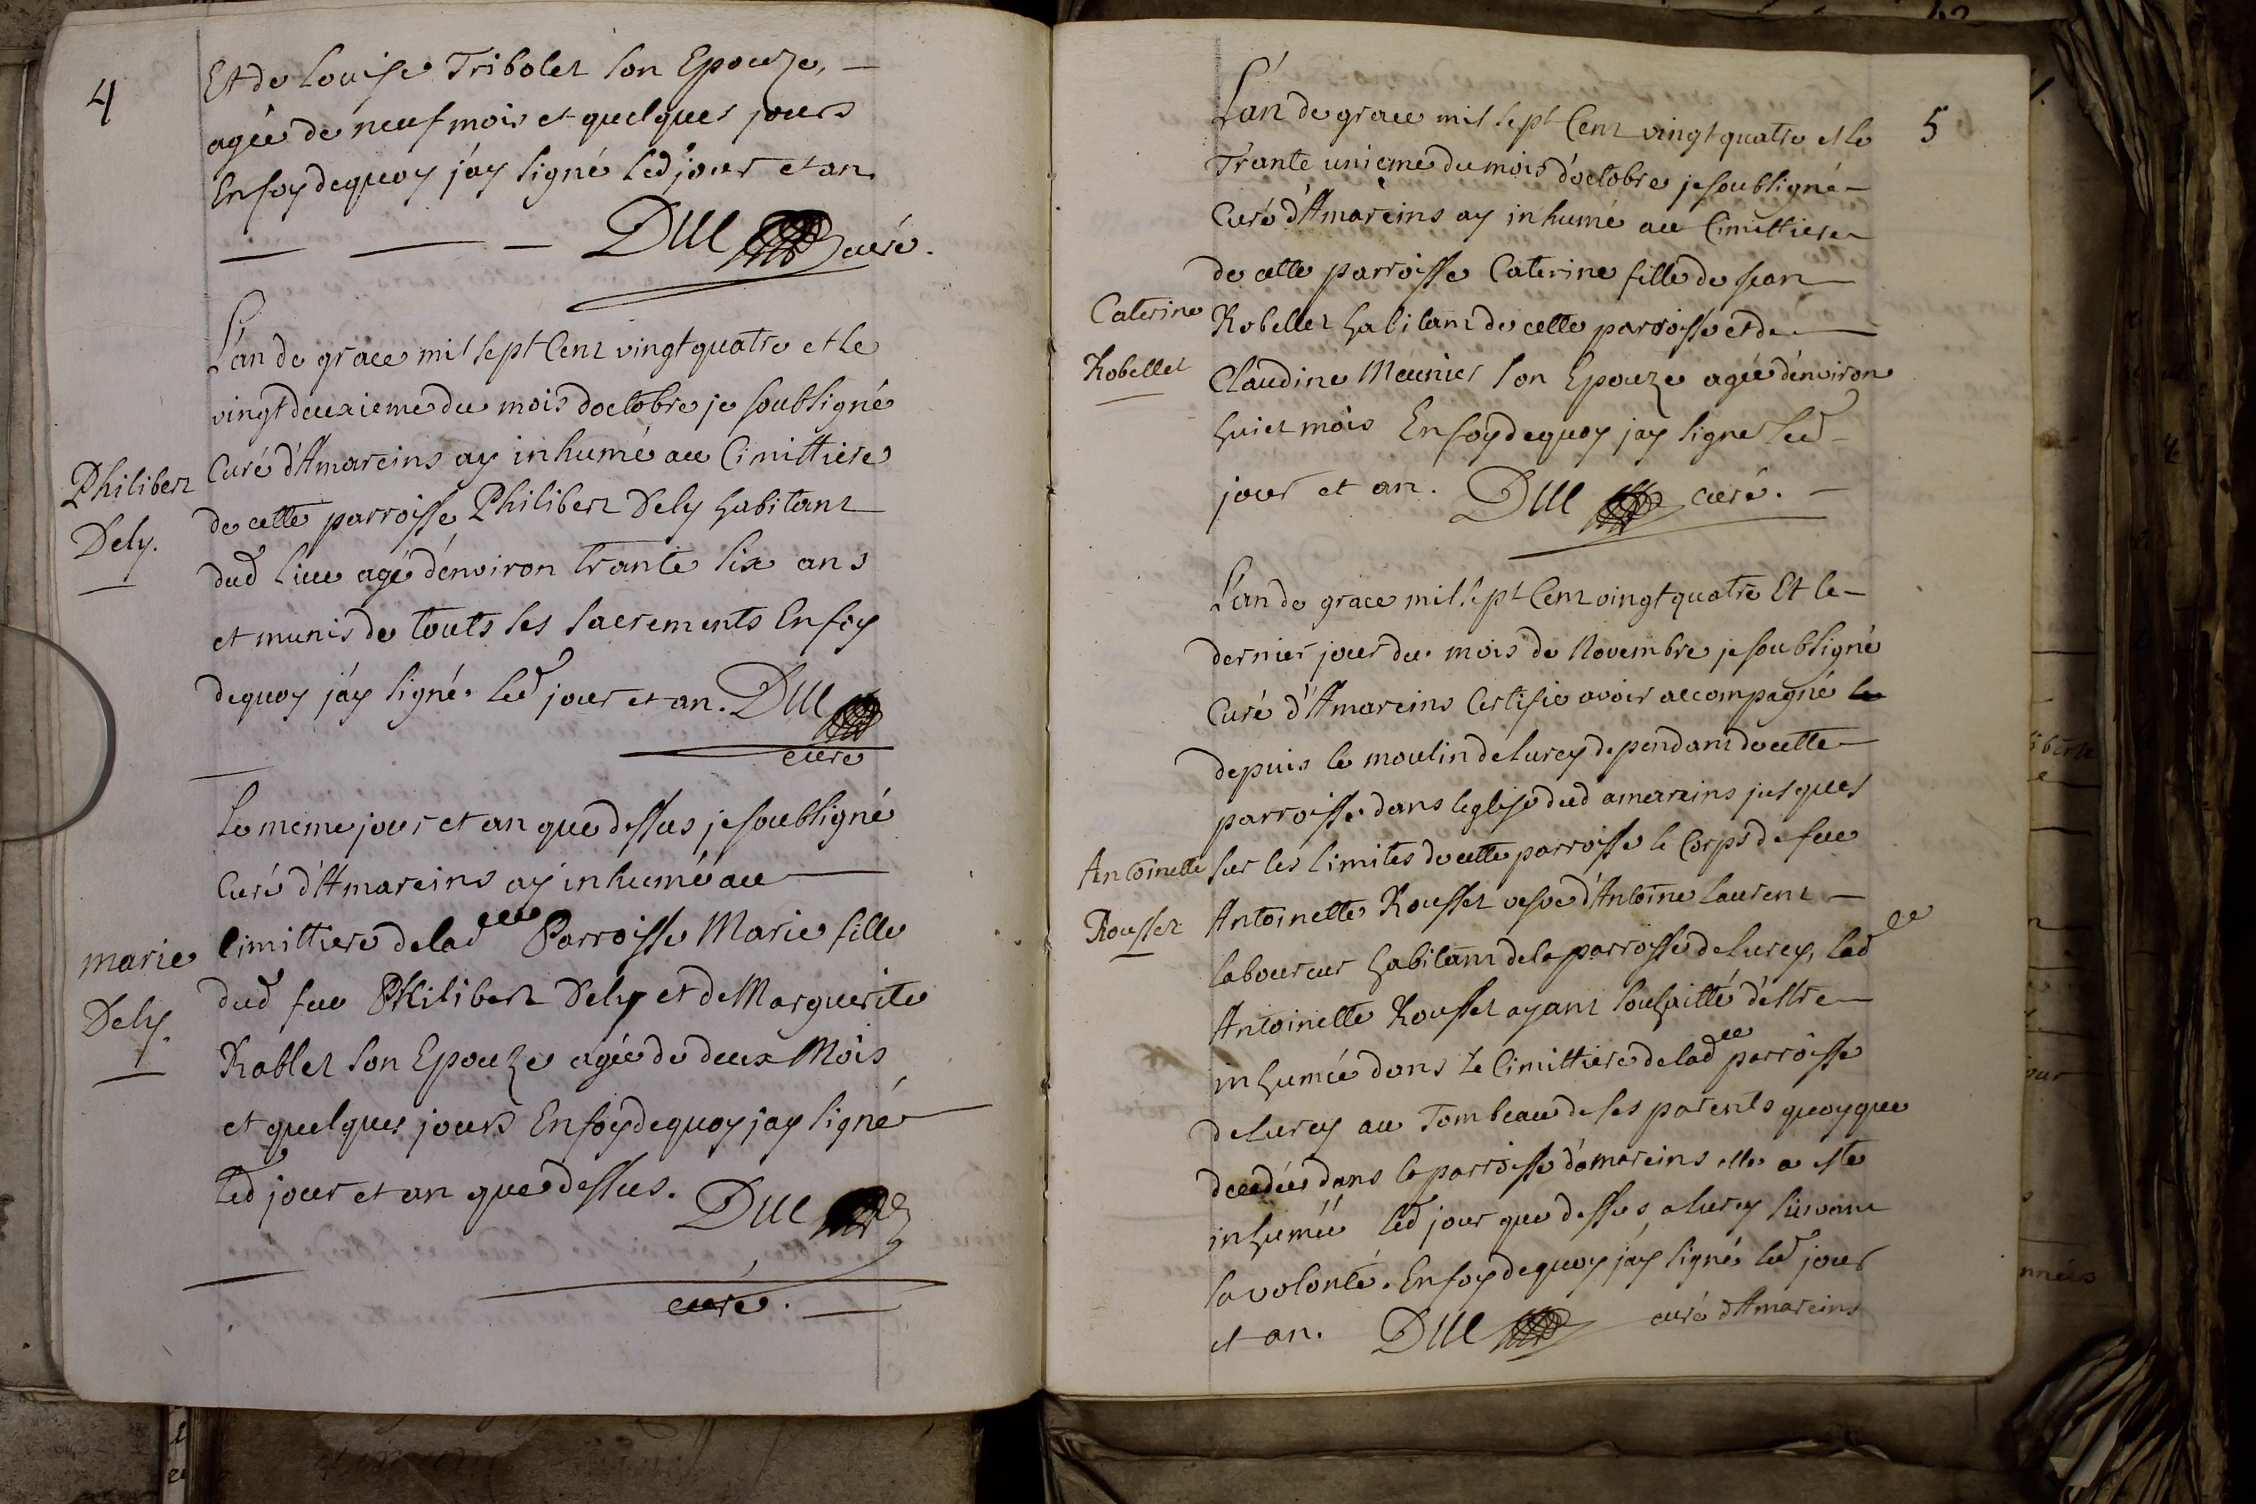 4
Et de Louise Tribolet son Epouze,
agée de neuf mois et quelques jours
En foy de quoy j'ay signé led jour et an
Duc curé.
L'an de grace mil sept Cent vingt quatre et le
vingt deuxieme du mois d'octobre je soubsigné
Curé d'Amareins ay inhumé au Cimittiere
Philibert
Dely.
de cette parroisse Philibert Dely habitant
dud lieu agé d'environ trante six ans
et munis de touts ses sacrements En foy
de quoy j'ay signé led jour et an. Duc
curé
Le meme jour et an que dessus je soubsigné
Curé d'Amareins ay inhumé au
marie
Dely.
Cimittiere de lad^tte Parroisse Marie fille
dud feu Philibert Dely et de Marguerite
Rablet son Epouze agée de deux Mois
et quelques jours En foy de quoy jay signé
led jour et an que dessus. Duc
curé.
5
L'an de grace mil sept Cent vingt quatre et le
Trante unieme du mois d'octobre je soubsigné
Curé d'Amareins ay inhumé au Cimittiere
de cette parroisse Caterine fille de Jean
Caterine
Robellet
Robellet habitant de cette parroisse et de
Claudine Meunier son Epouze agée d'environ
huict mois En foy de quoy jay signé led
jour et an. Duc curé.
L'an de grace mil sept Cent vingt quatre Et le
dernier jour du mois de Novembre je soubsigné
Curé d'Amareins Certifie avoir accompagné
depuis le moulin de Lurcy dependant de cette
parroisse dans leglise dud amareins jusques
Antoinette
Rousset
sur les limites de cette parroisse le Corps de feue
Antoinette Rousset vefve d'Antoine Laurent
laboureur habitant de la parroisse de Lurcy, lad^tte
Antoinette Rousset ayant souhaitté d'estre
inhumée dans le Cimittiere de lad^tte parroisse
de Lurcy au Tombeau de ses parents quoyque
decedée dans la parroisse d'amareins elle a esté
inhumée led jour que dessus a Lurcy suivant
sa volonté. En foy de quoy j'ay signé led jour
et an. Duc curé d'Amareins